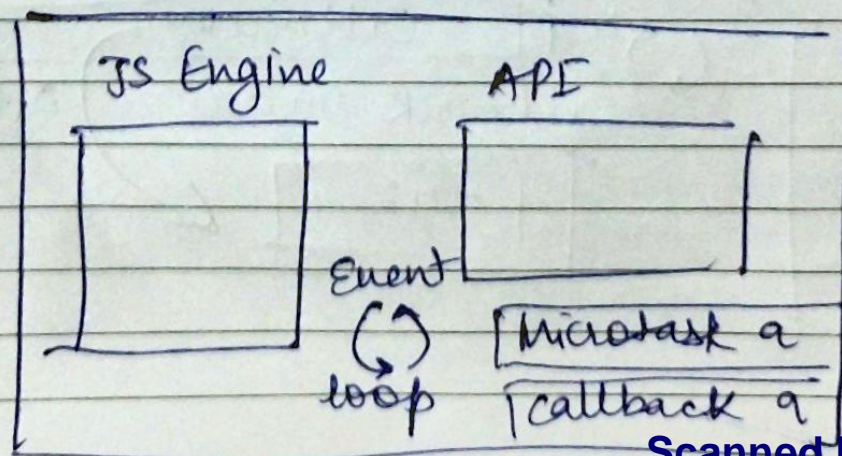 JS Engine
API
Event
loop
Microtask q
callback q
Scanned